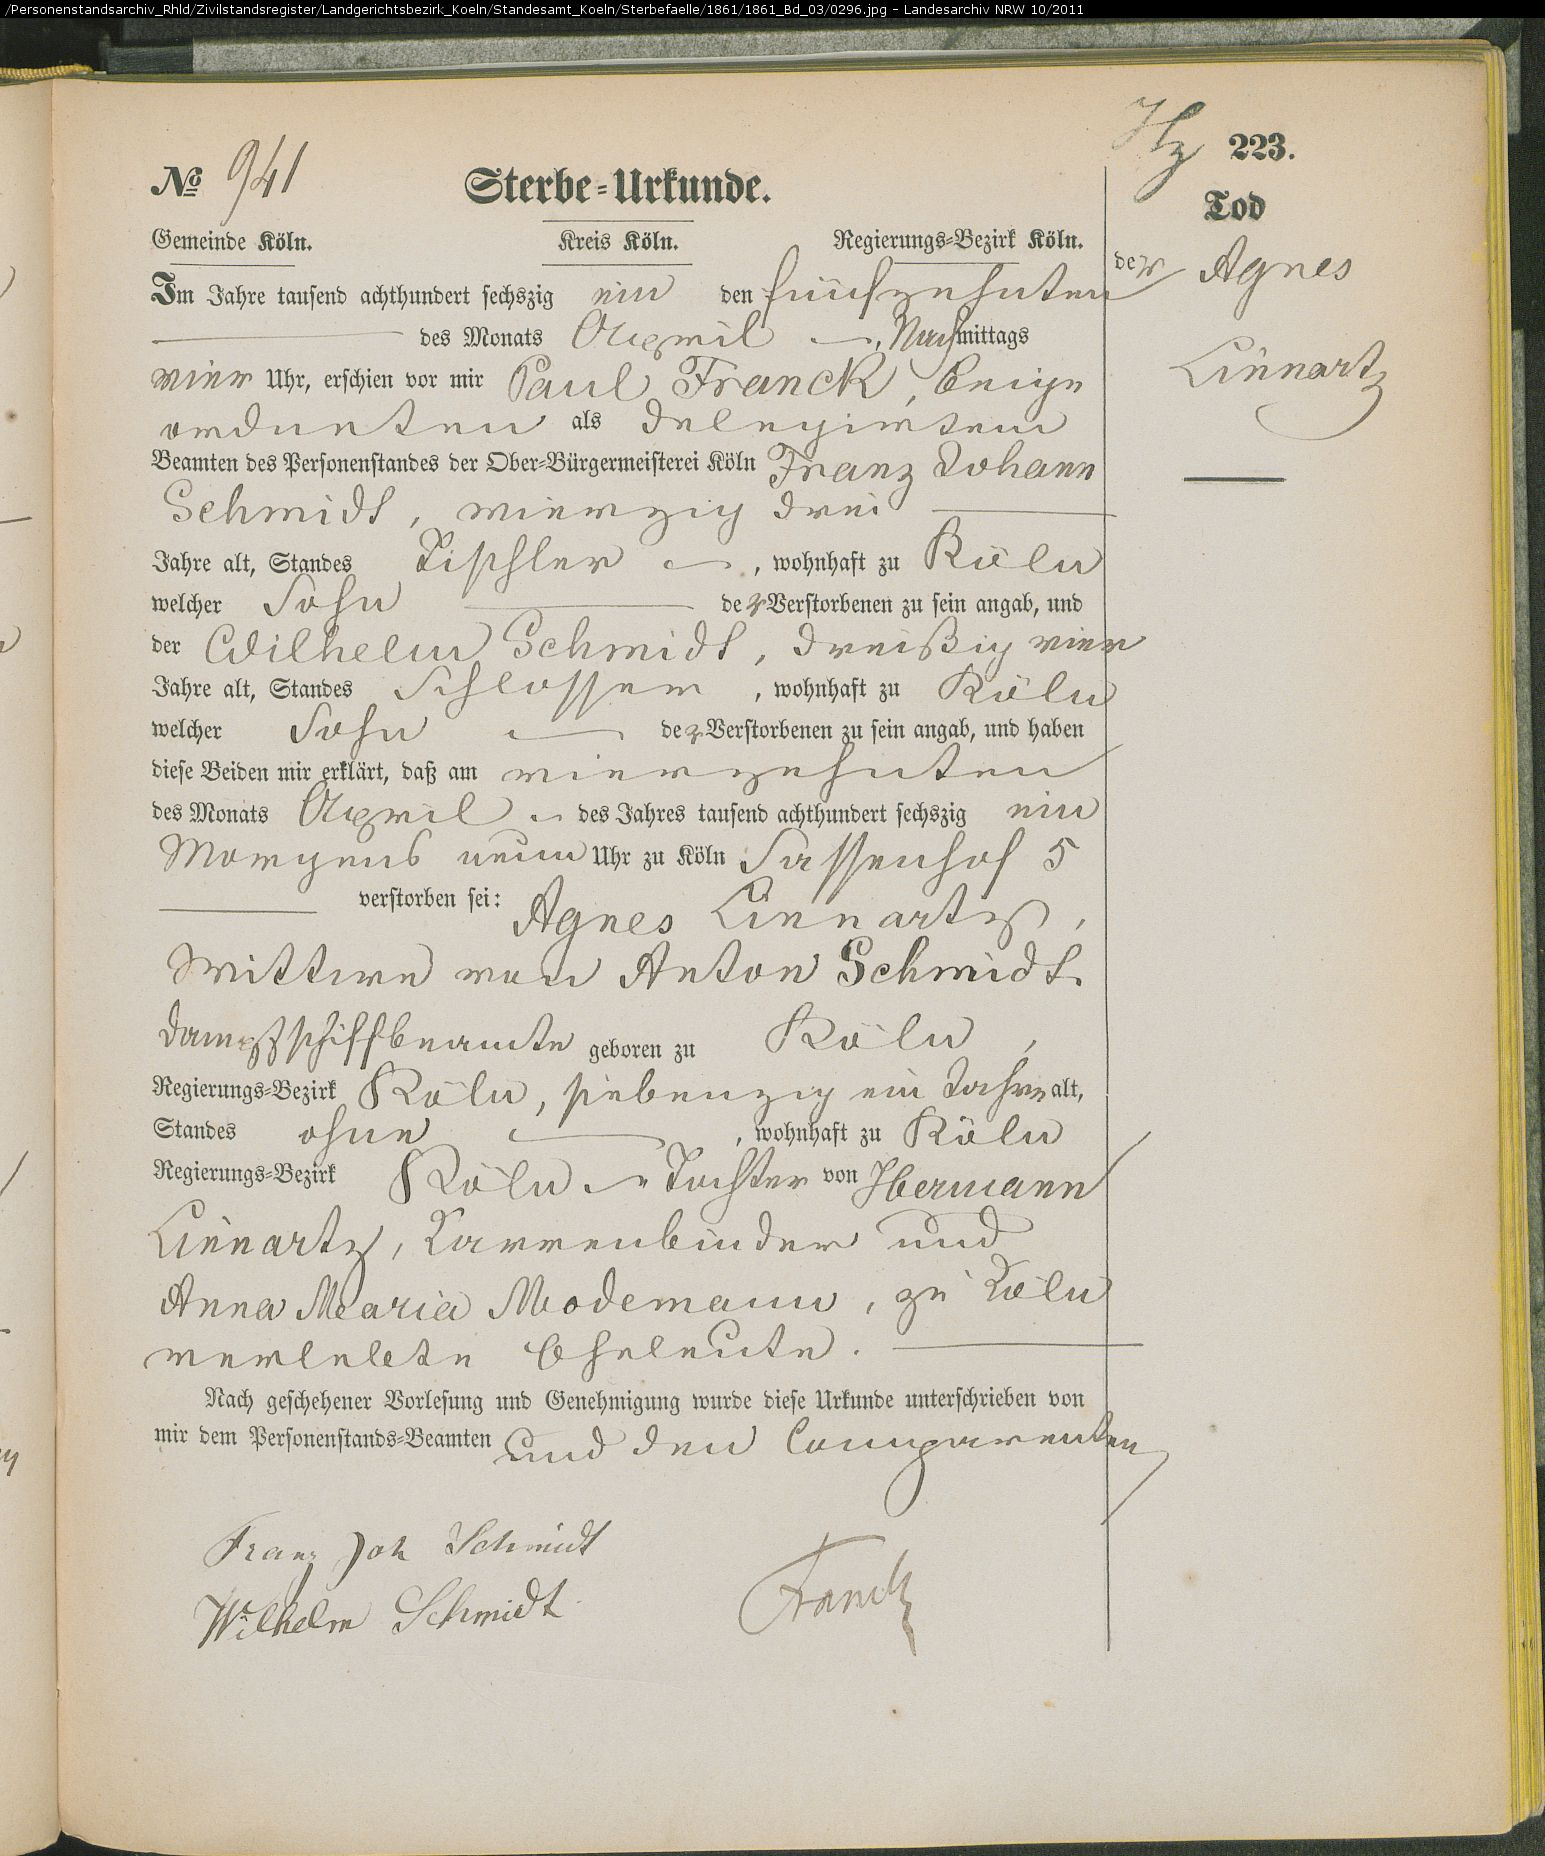 /Personenstandsarchiv_Rhld/Zivilstandsregister/Landgerichtsbezirk_Koeln/Standesamt_Koeln/Sterbefaelle/1861/1861_Bd_03/0296.jpg - Landesarchiv NRW 10/2011
Hz 223.
No 941 Sterbe-Urkunde.
Tod
Gemeinde Köln. Kreis Köln. Regierungs-Bezirk Köln.
der Agnes
Linnartz
Im Jahre tausend achthundert sechszig ein den fünfzehnten
des Monats April, Nachmittags
vier Uhr, erschien vor mir Paul Franck, Beige
ordneten als delegirtem
Beamten des Personenstandes der Ober-Bürgermeisterei Köln Franz Johann
Schmidt, vierzig drei
Jahre alt, Standes Tischler, wohnhaft zu Köln
welcher Sohn der Verstorbenen zu sein angab, und
der Wilhelm Schmidt, dreißig vier
Jahre alt, Standes Schlosser, wohnhaft zu Köln
welcher Sohn der Verstorbenen zu sein angab, und haben
diese Beiden mir erklärt, daß am vierzehnten
des Monats April des Jahres tausend achthundert sechszig ein
Morgens neun Uhr zu Köln Sassenhof 5
verstorben sei: Agnes Linnartz,
Wittwe von Anton Schmidt
Dampfschiffbeamte geboren zu Köln,
Regierungs-Bezirk Köln, siebenzig ein Jahre alt,
Standes ohne, wohnhaft zu Köln
Regierungs-Bezirk Köln Tochter von Hermann
Linnartz, Karrenbinder und
Anna Maria Modemann, zu Köln
verlebte Eheleute.
Nach geschehener Vorlesung und Genehmigung wurde diese Urkunde unterschrieben von
mir dem Personenstands-Beamten und den Comparenten
Franz Joh Schmidt
Wilhelm Schmidt Franck